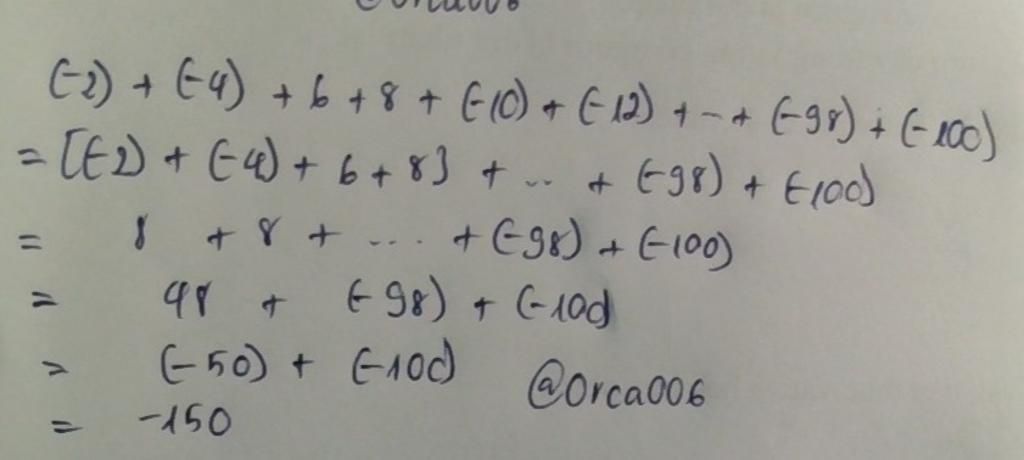 @Orca006
(-2) + (-4) + 6 + 8 + (-10) + (-12) + -- + (-98) + (-100)
= [(-2) + (-4) + 6 + 8] + .. + (-98) + (-100)
= 8 + 8 + .... + (-98) + (-100)
= 48 + (-98) + (-100)
= (-50) + (-100)
@Orca006
= -150